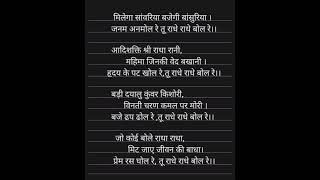 मिलेगा सांवरिया बजेगी बांसुरिया ।
जनम अनमोल रे तू राधे राधे बोल रे।।
आदिशक्ति श्री राधा रानी,
महिमा जिनकी वेद बखानी ।
हृदय के पट खोल रे,तू राधे राधे बोल रे।।
बड़ी दयालु कुंवर किशोरी,
विनती चरण कमल पर मोरी ।
बजे ढप ढोल रे ,तू राधे राधे बोल रे।।
जो कोई बोले राधा राधा,
मिट जाए जीवन की बाधा।
प्रेम रस घोल रे,तू राधे राधे बोल रे।।